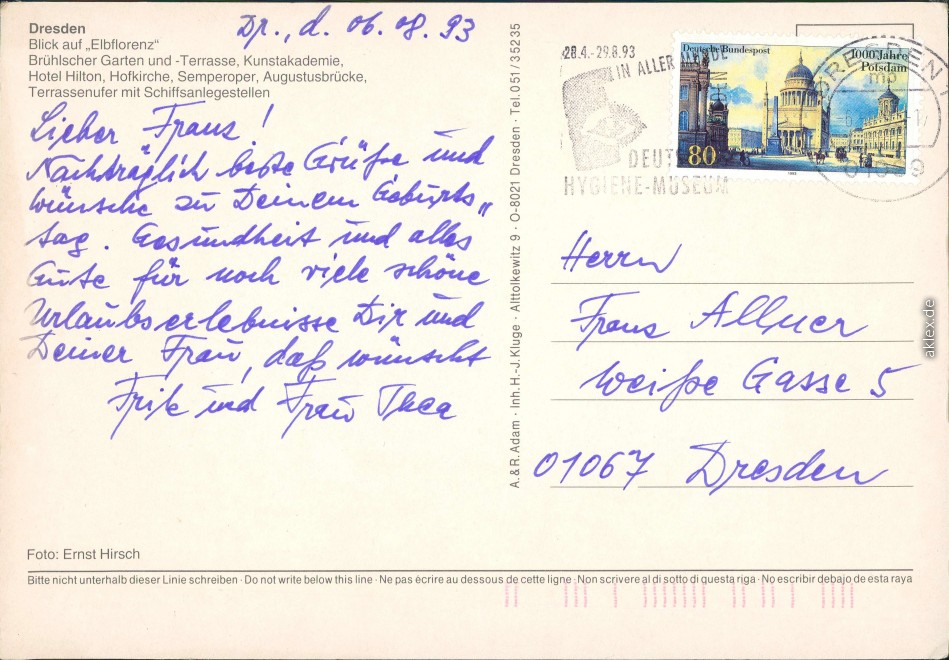 Dresden
Blick auf „Elbflorenz“
Brühlscher Garten und -Terrasse, Kunstakademie,
Hotel Hilton, Hofkirche, Semperoper, Augustusbrücke,
Terrassenufer mit Schiffsanlegestellen
Dr., d. 06.08.93
Lieber Franz!
Nachträglich beste Grüße und
Wünsche zu Deinem Geburts„
tag. Gesundheit und alles
Gute für noch viele schöne
Urlaubserlebnisse Dir und
Deiner Frau, daß wünscht
Fritz und Frau Thea
Foto: Ernst Hirsch
A. & R. Adam · Inh. H.-J. Kluge · Alttolkewitz 9 · O-8021 Dresden · Tel. 051/35235
28.4.-29.8.93
IN ALLER
DEUT
HYGIENE-MUSEUM
Deutsche Bundespost
1000 Jahre
Potsdam
80
1993
DRESDEN 1
mp
Herrn
Franz Allner
Weiße Gasse 5
01067 Dresden
Bitte nicht unterhalb dieser Linie schreiben · Do not write below this line · Ne pas ècrire au dessous de cette ligne · Non scrivere al di sotto di questa riga · No escribir debajo de esta raya
aklex.de